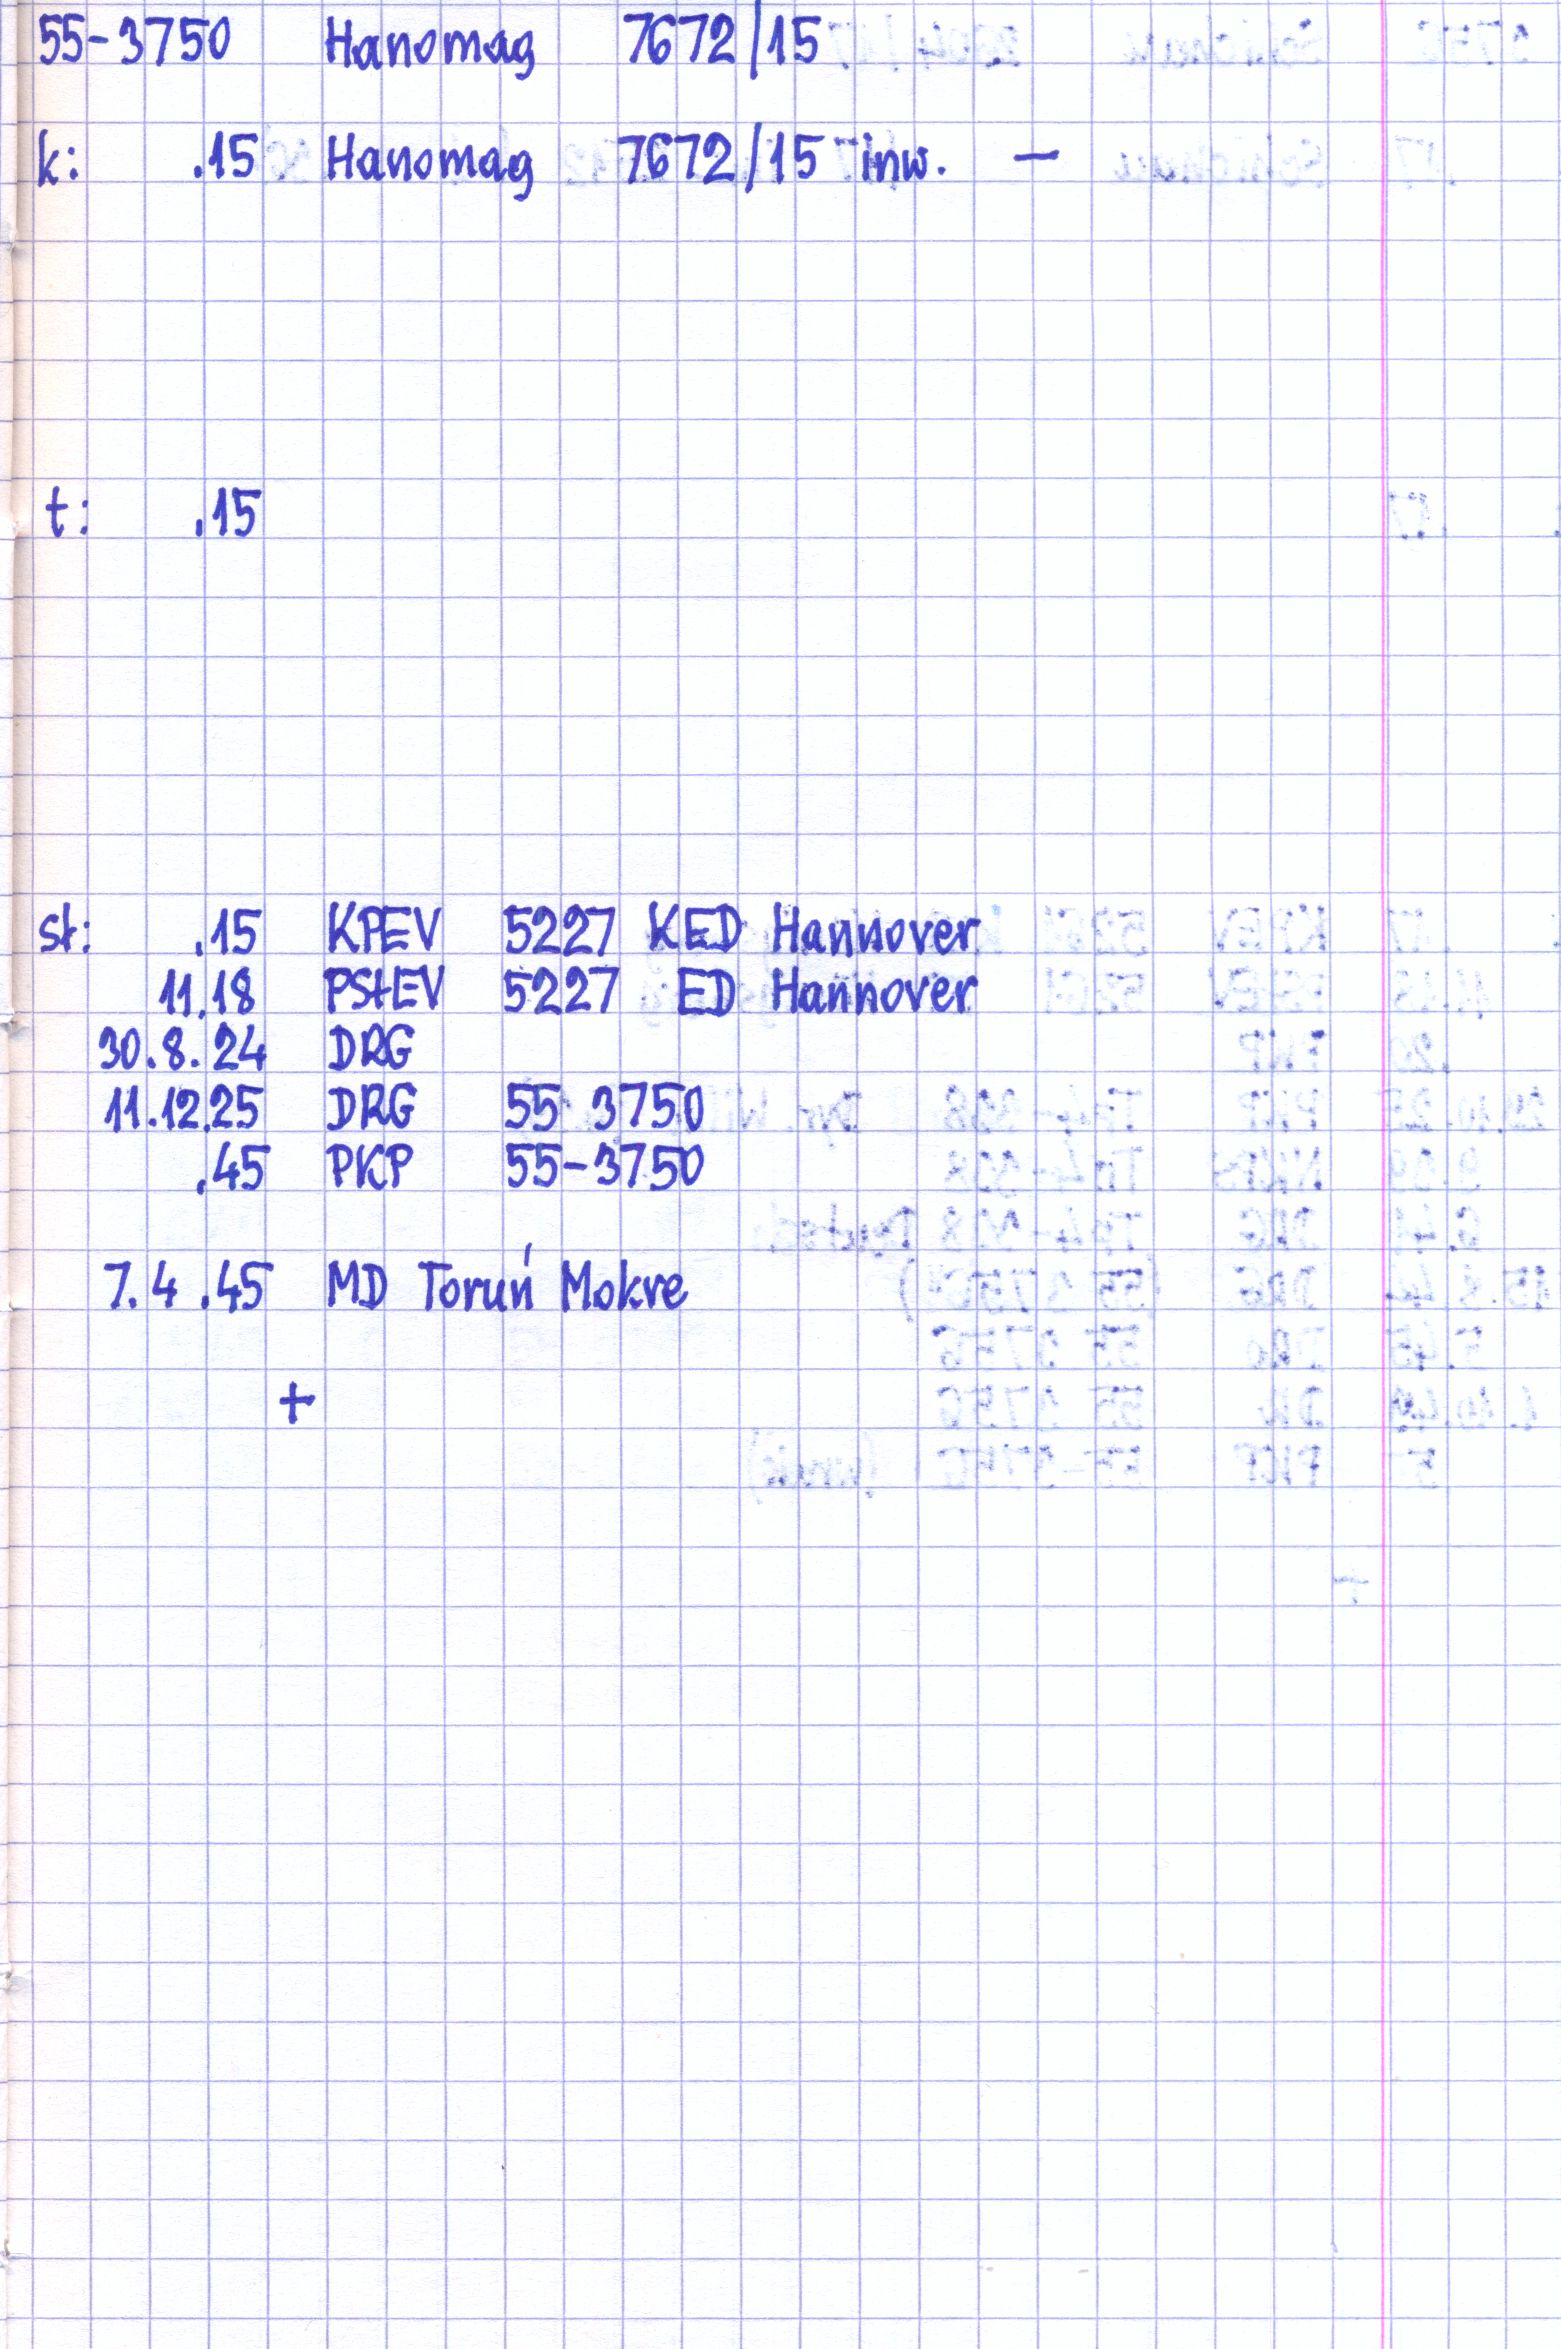 55-3750 Hanomag 7672/15
k: .15 Hanomag 7672/15 inw. —
t: .15
st: .15 KPEV 5227 KED Hannover
11.18 PStEV 5227 ED Hannover
30.8.24 DRG
11.12.25 DRG 55 3750
.45 PKP 55-3750
7.4.45 MD Toruń Mokre
+